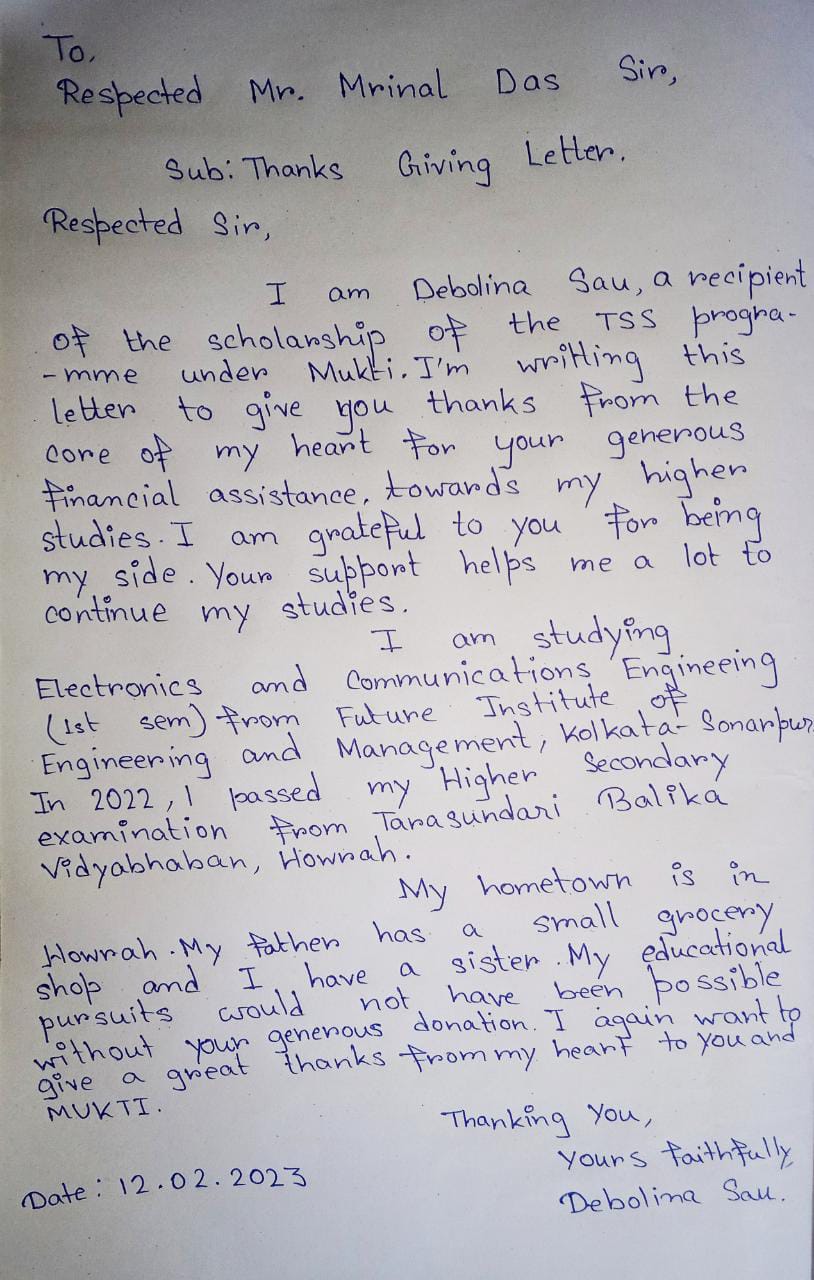 To,
Respected Mr. Mrinal Das Sir,
Sub: Thanks Giving Letter.
Respected Sir,
I am Debolina Sau, a recipient
of the scholarship of the TSS progra-
-mme under Mukti. I'm writting this
letter to give you thanks from the
core of my heart for your generous
financial assistance, towards my higher
studies. I am grateful to you for being
my side. Your support helps me a lot to
continue my studies.
I am studying
Electronics and Communications Engineeing
(1st sem) from Future Institute of
Engineering and Management, Kolkata- Sonarpur
In 2022, I passed my Higher Secondary
examination from Tarasundari Balika
Vidyabhaban, Howrah.
My hometown is in
Howrah. My father has a small grocery
shop and I have a sister. My educational
pursuits would not have been possible
without your generous donation. I again want to
give a great thanks from my heart to you and
MUKTI.
Thanking You,
Yours faithfully,
Debolina Sau.
Date: 12.02.2023